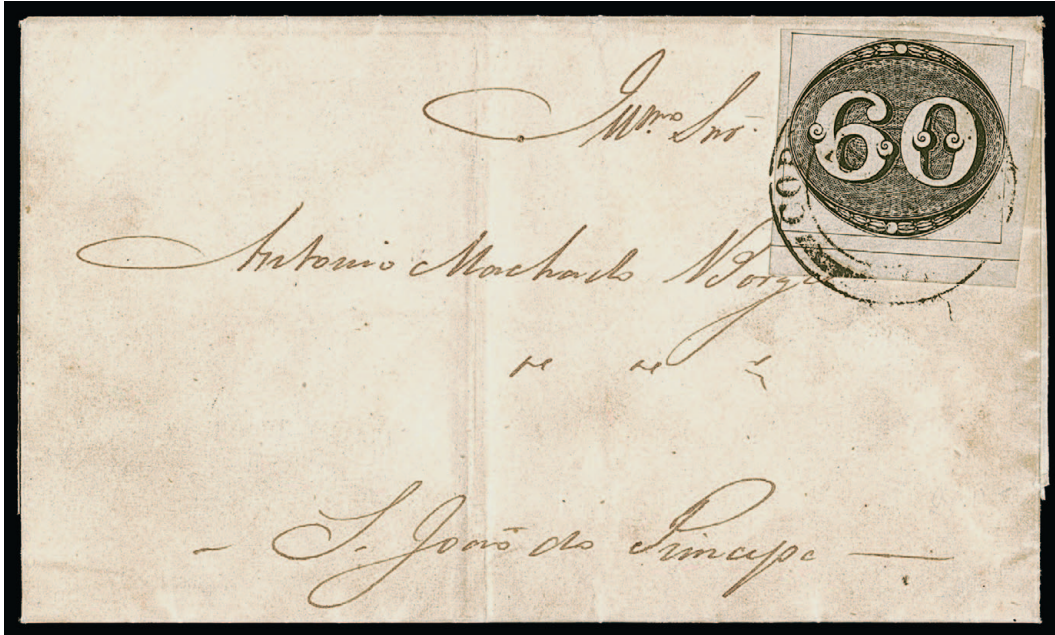 Illmo. Snr.
60
COR
Antonio Machado
S. João do Principe